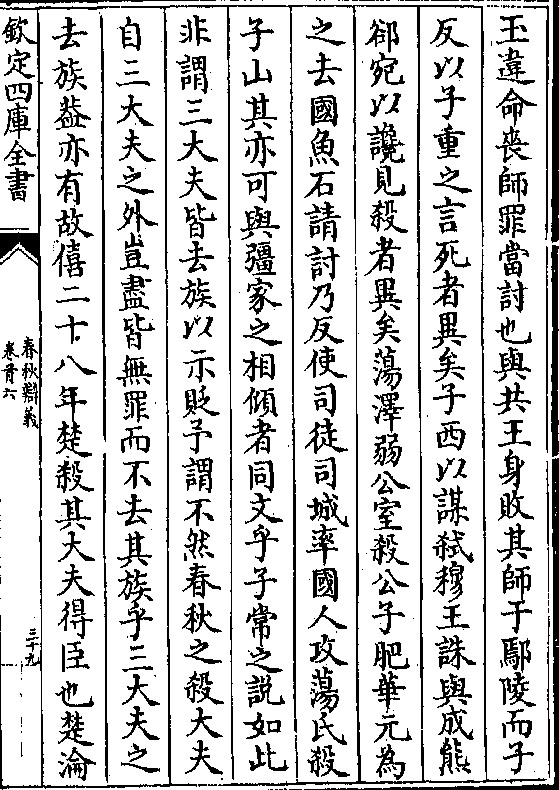 玉違命喪師罪當討也與共王身敗其師于鄢陵而子
反以子重之言死者異矣子西以謀弑穆王誅與成熊
郤宛以讒見殺者異矣蕩澤弱公室殺公子肥華元為
之去國魚石請討乃反使司徒司城率國人攻蕩氏殺
子山其亦可與彊家之相傾者同文乎子常之說如此
非謂三大夫皆去族以示貶予謂不然春秋之殺大夫
自三大夫之外豈盡皆無罪而不去其族乎三大夫之
去族葢亦有故僖二十八年楚殺其大夫得臣也楚淪
欽定四庫全書
春秋辯義
卷首六
三十九